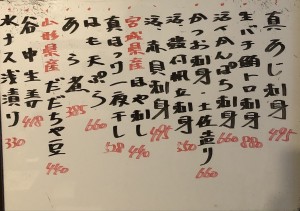 真あじ刺身 495
生バチ鮪トロ刺身 880
活〆かんぱち刺身
かつお刺身・土佐造り 660
活〆帆立刺身 550
活〆赤貝刺身 495
宮城県産ほや刺身 440
真ほっけ一夜干し 528
はも天ぷら 660
あら煮 385
山形県産だだちゃ豆 440
谷中生姜 418
水ナス浅漬り 330